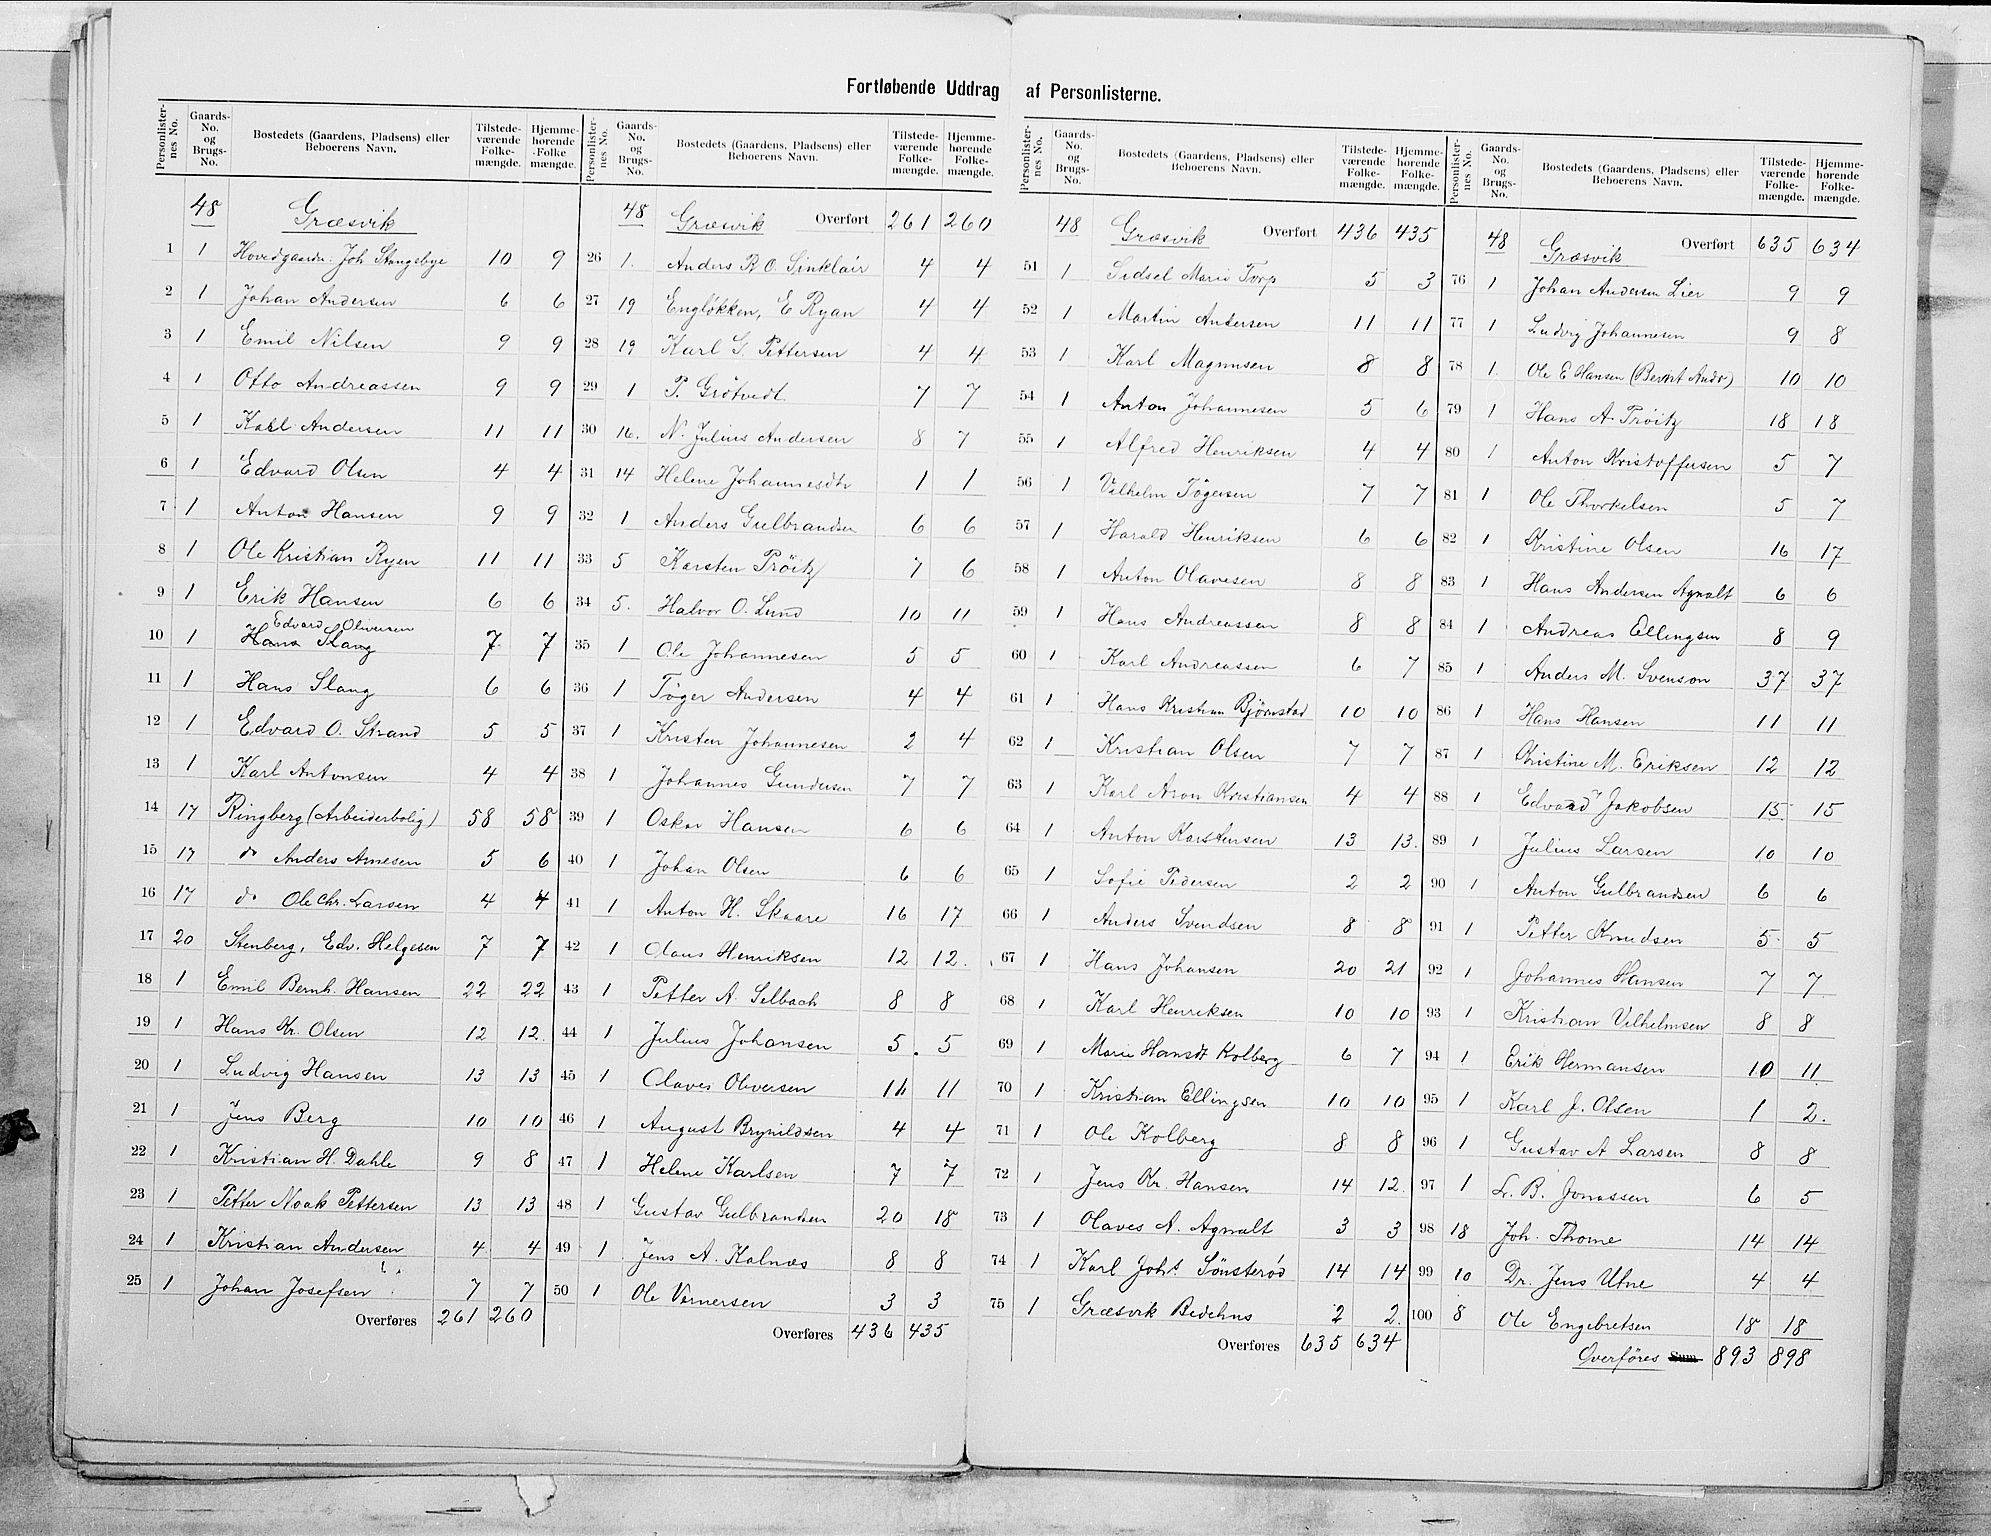 Fortløbende Uddrag af Personlisterne.
Personlisternes No. Gaards-No. og Brugs-No. Bostedets (Gaardens, Pladsens) eller Beboerens Navn. Tilstedeværende Folkemængde. Hjemmehørende Folkemængde.
48 Græsvik
1 1 Hovedgaarden Joh Stangebye 10 9
2 1 Johan Andersen 6 6
3 1 Emil Nilsen 9 9
4 1 Otto Andreassen 9 9
5 1 Karl Andersen 11 11
6 1 Edvard Olsen 4 4
7 1 Anton Hansen 9 9
8 1 Ole Kristian Ryen 11 11
9 1 Erik Hansen 6 6
Edvard Oliversen
10 1 Hans Slang 7 7
11 1 Hans Slang 6 6
12 1 Edvard O. Strand 5 5
13 1 Karl Antonsen 4 4
14 17 Ringberg (Arbeiderbolig) 58 58
15 17 do Anders Arnesen 5 6
16 17 do Ole Chr. Larsen 4 4
17 20 Stenberg, Edv. Helgesen 7 7
18 1 Emil Bernh. Hansen 22 22
19 1 Hans Kr. Olsen 12 12
20 1 Ludvig Hansen 13 13
21 1 Jens Berg 10 10
22 1 Kristian H. Dahle 9 8
23 1 Petter Noak Pettersen 13 13
24 1 Kristian Andersen 4 4
25 1 Johan Josefsen 7 7
Overføres 261 260
Personlisternes No. Gaards-No. og Brugs-No. Bostedets (Gaardens, Pladsens) eller Beboerens Navn. Tilstedeværende Folkemængde. Hjemmehørende Folkemængde.
48 Græsvik Overført 261 260
26 1. Anders R O. Sinklair 4 4
27 19 Engløkken, E Ryan 4 4
28 19 Karl G. Pettersen 4 4
29 1 P. Grötvedt 7 7
30 16. N. Julius Andersen 8 7
31 14 Helene Johannesdtr 1 1
32 1 Anders Gulbrandsen 6 6
33 5 Karsten Pröitz 7 6
34 5. Halvor O. Lund 10 11
35 1 Ole Johannesen 5 5
36 1 Töger Andersen 4 4
37 1 Kristen Johannesen 2 4
38 1 Johannes Gundersen 7 7
39 1 Oskar Hansen 6 6
40 1 Johan Olsen 6 6
41 1 Anton H. Skaare 16 17
42 1 Claus Henriksen 12 12.
43 1 Petter A. Selbach 8 8
44 1 Julius Johansen 5. 5
45 1 Olaves Oliversen 11 11
46 1 August Brynildsen 4 4
47 1 Helene Karlsen 7 7
48 1 Gustav Gulbrandsen 20 18
49 1 Jens A. Kalnæs 8 8
50 1 Ole Vernersen 3 3
Overføres 436 435
Personlisternes No. Gaards-No. og Brugs-No. Bostedets (Gaardens, Pladsens) eller Beboerens Navn. Tilstedeværende Folkemængde. Hjemmehørende Folkemængde.
48 Græsvik Overført 436 435
51 1 Sidsel Marie Torp 5 3
52 1 Martin Andersen 11 11
53 1 Karl Magnusen 8 8
54 1 Anton Johannesen 5 6
55 1 Alfred Henriksen 4 4
56 1 Vilhelm Tögersen 7 7
57 1 Harald Henriksen 6 6
58 1 Anton Olavesen 8 8
59 1 Hans Andreassen 8 8
60 1 Karl Andreassen 6 7
61 1 Hans Kristian Bjørnstad 10 10
62 1 Kristian Olsen 7 7
63 1 Karl Aron Kristiansen 4 4
64 1 Anton Karstensen 13 13.
65 1 Sofie Pedersen 2 2
66 1 Anders Svendsen 8 8
67 1 Hans Johansen 20 21
68 1 Karl Henriksen 10 10
69 1 Marie Hansdt Kolberg 6 7
70 1 Kristian Ellingsen 10 10
71 1 Ole Kolberg 8 8
72 1 Jens Kr. Hansen 14 12.
73 1 Olaves A. Agnalt 3 3
74 1 Karl Johs. Sönsteröd 14 14
75 1 Græsvik Bedehus 2 2.
Overføres 635 634
Personlisternes No. Gaards-No. og Brugs-No. Bostedets (Gaardens, Pladsens) eller Beboerens Navn. Tilstedeværende Folkemængde. Hjemmehørende Folkemængde.
48 Græsvik Overført 635 634
76 1 Johan Andersen Lier 9 9
77 1 Ludvig Johannesen 9 8
78 1. Ole E Hansen (Bernt Andr) 10 10
79 1 Hans A. Pröitz 18 18
80 1 Anton Kristoffersen 5 7
81 1 Ole Thorkelsen 5 7
82 1 Kristine Olsen 16 17
83 1 Hans Andersen Agnalt 6 6
84 1 Andreas Ellingsen 8 9
85 1 Anders M. Svenson 37 37
86 1 Hans Hansen 11 11
87 1 Christine M. Eriksen 12 12
88 1 Edvard Jakobsen 15. 15
89 1 Julius Larsen 10 10
90 1 Anton Gulbrandsen 6 6
91 1 Petter Knudsen 5 5
92 1 Johannes Hansen 7 7
93 1 Kristian Vilhelmsen 8 8
94 1 Erik Hermansen 10 11
95 1 Karl J. Olsen 1 2.
96 1 Gustav A Larsen 8 8
97 1 L. B. Jonassen 6 5
98 18 Joh. Thorne 14 14
99 10 Dr. Jens Utne 4 4
100 8 Ole Engebretsen 18 18
Overføres Sum 893 898